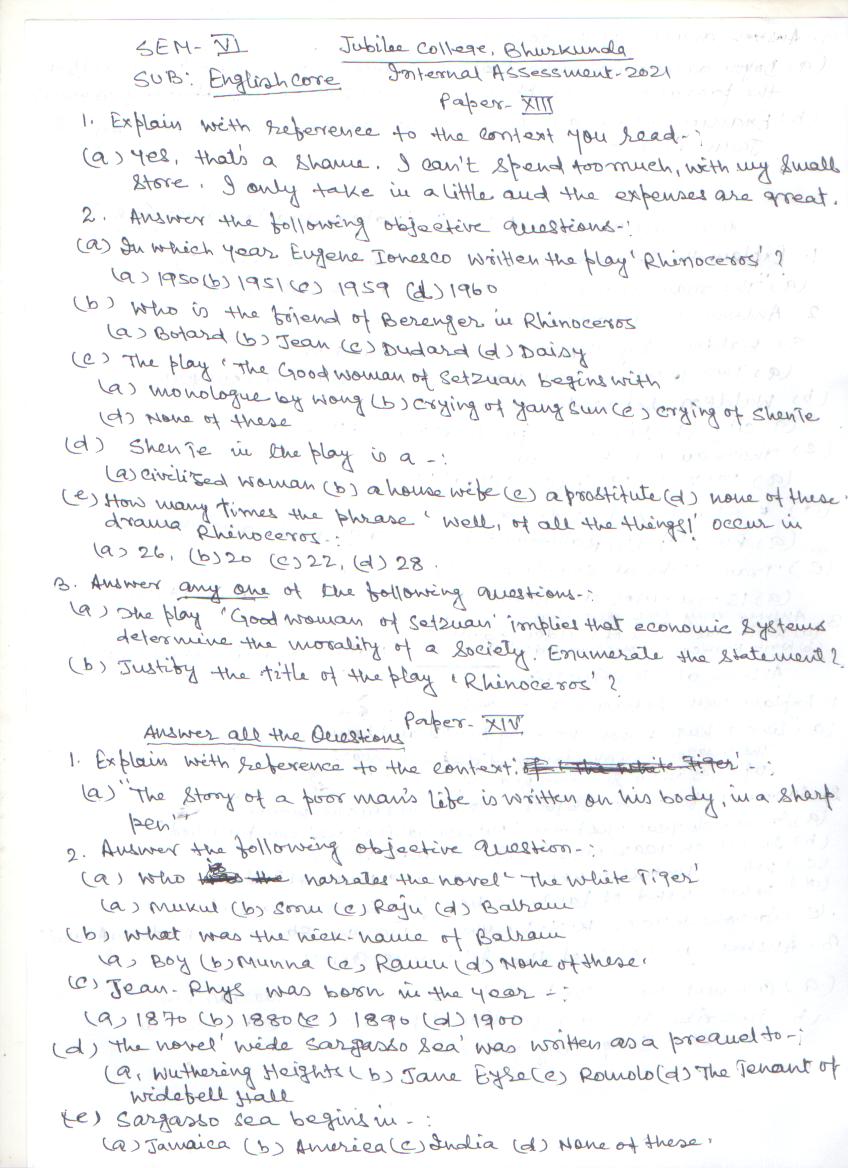 SEM- VI Jubilee College, Bhurkunda
SUB: English core Internal Assessment-2021
Paper- XIII
1. Explain with reference to the context you read-:
(a) Yes, that's a shame. I can't spend too much, with my small
store. I only take in a little and the expenses are great.
2. Answer the following objective questions-:
(a) In which year Eugene Ionesco written the play 'Rhinoceros'?
(a) 1950 (b) 1951 (c) 1959 (d) 1960
(b) Who is the friend of Berenger in Rhinoceros
(a) Botard (b) Jean (c) Dudard (d) Daisy
(c) The play 'The Good woman of Setzuan begins with -
(a) monologue by wong (b) crying of Yang Sun (c) crying of ShenTe
(d) None of these
(d) ShenTe in the play is a -:
(a) civilized woman (b) a house wife (c) a prostitute (d) none of these.
(e) How many times the phrase 'well, of all the things!' occur in
drama Rhinoceros-:
(a) 26, (b) 20 (c) 22, (d) 28.
3. Answer any one of the following questions-:
(a) The play 'Good woman of Setzuan' implies that economic systems
determine the morality of a society. Enumerate the statement?
(b) Justify the title of the play 'Rhinoceros'?
Paper- XIV
Answer all the Questions
1. Explain with reference to the context: 'The White Tiger' -:
(a) "The story of a poor man's life is written on his body, in a sharp
pen"
2. Answer the following objective question-:
(a) Who narrates the novel 'The White Tiger'
(a) Mukul (b) Sonu (c) Raju (d) Balram
(b) What was the nick-name of Balram
(a) Boy (b) Munna (c) Ramu (d) None of these.
(c) Jean-Rhys was born in the year -:
(a) 1870 (b) 1880 (c) 1890 (d) 1900
(d) The novel 'wide Sargasso Sea' was written as a prequel to -:
(a, Wuthering Heights (b) Jane Eyre (c) Romolo (d) The Tenant of
widefell Hall
(e) Sargasso sea begins in -:
(a) Jamaica (b) America (c) India (d) None of these.